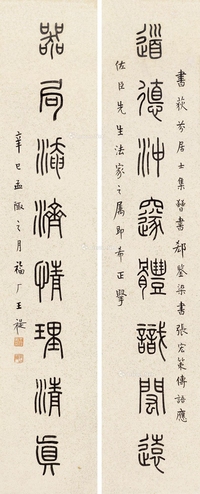 書荻芬居士集晉書郗鑒梁書張宏策傳語應
道德沖邃體識閎遠
佐臣先生法家之屬即希正擘
器局淹濟情理清真
辛巳孟陬之月福厂王禔